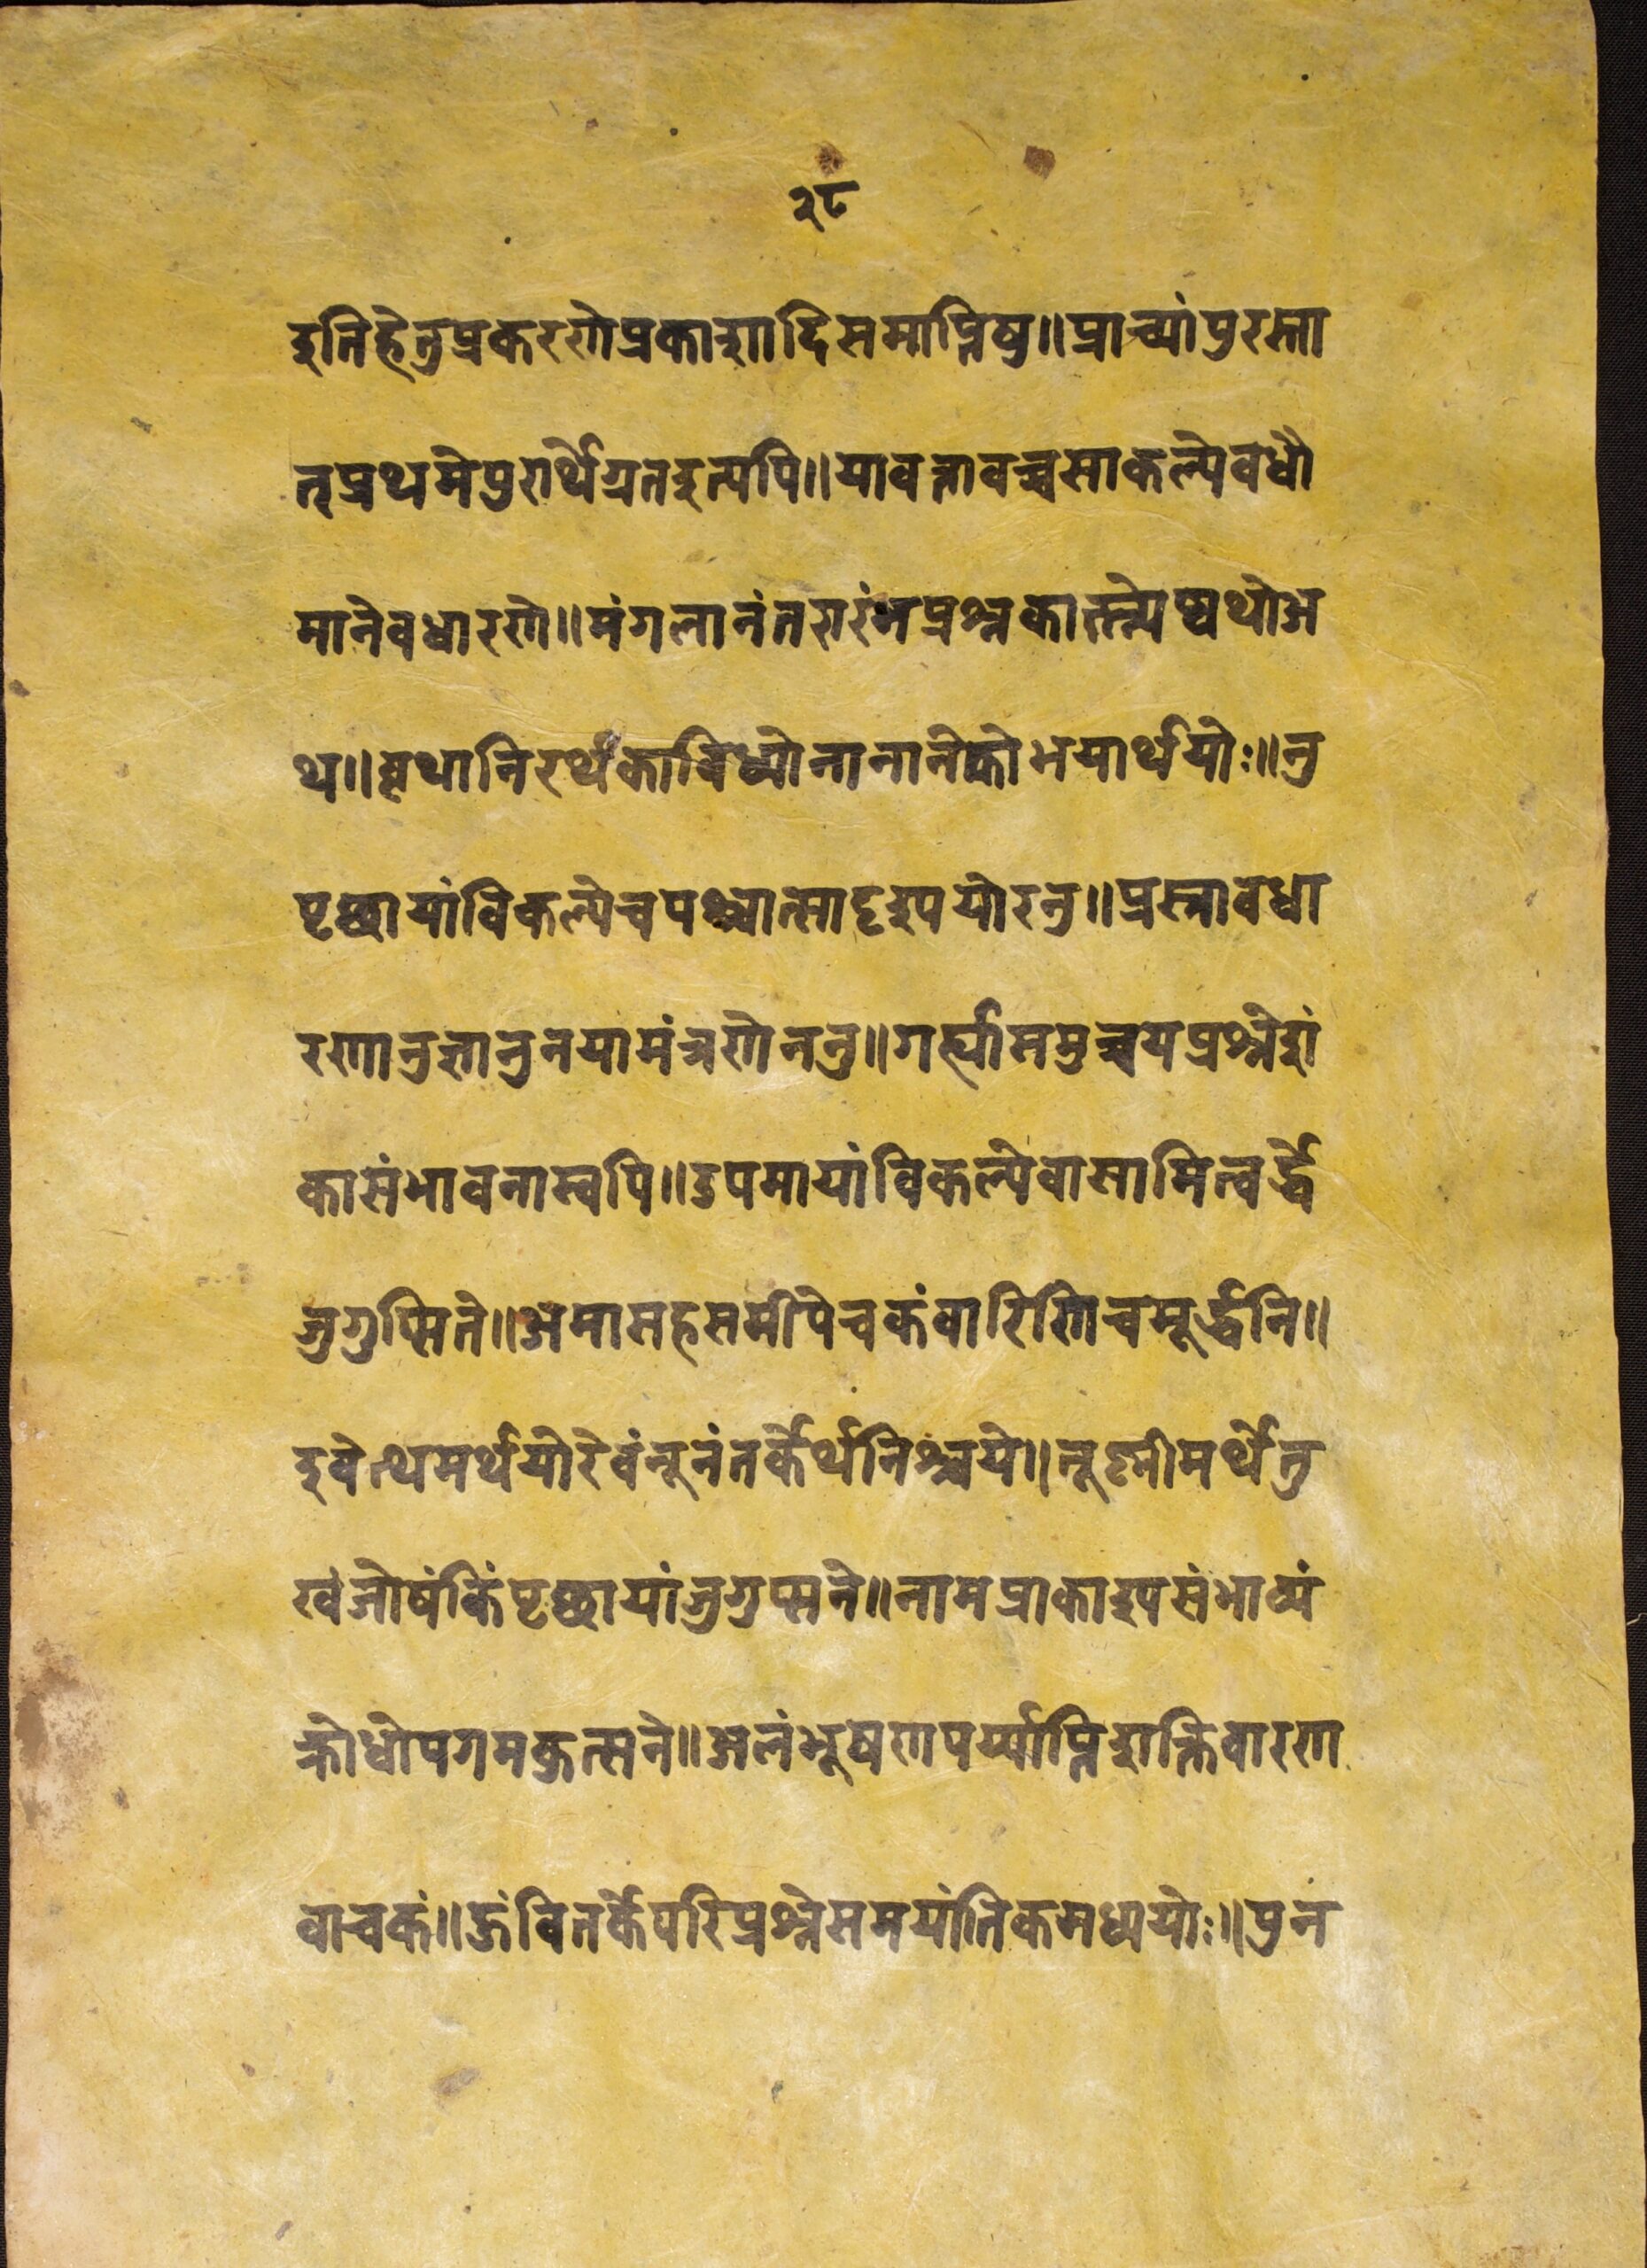 २८
इतिहेतुप्रकरणेप्रकाशादिसमाप्तिषु॥प्राच्यांपुरस्ता
त्प्रथमेपुरार्थेग्रतइत्यपि॥यावत्तावच्चसाकल्पेवधौ
मानेवधारणे॥मंगलानंतरारंभप्रश्नकार्त्स्न्येष्वथोअ
थ॥वृथानिरर्थकाविध्योनानानेकोभयार्थयोः॥नु
पृच्छायांविकल्पेचपश्चात्सादृश्ययोरनु॥प्रस्नावधा
रणानुज्ञानुनयामंत्रणेननु॥गर्ह्यासमुच्चयप्रश्नेशं
कासंभावनास्वपि॥उपमायांविकल्पेवासामित्वर्द्धे
जुगुप्सिते॥अमासहसमीपेचकंवारिणिचमूर्द्धनि॥
इवेत्थमर्थयोरेवंनूनंतर्केर्थनिश्चये॥तूष्णीमर्थेतु
खंजोषंकिंपृच्छायांजुगुप्सने॥नामप्राकाश्यसंभाव्यं
क्रोधोपगमकुत्सने॥अलंभूषणपर्य्याप्तिशक्तिवारण
वाचकं॥ऊंवितर्केपरिप्रश्नेसमयांतिकमध्ययोः॥पुन